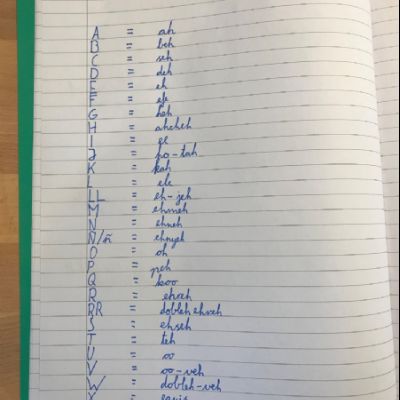 A = ah
B = beh
C = seh
D = deh
E = eh
F = efe
G = heh
H = ahcheh
I = ee
J = ho-tah
K = kah
L = ele
LL = eh-yeh
M = ehmeh
N = ehneh
Ñ/ñ = ehnyeh
O = oh
P = peh
Q = koo
R = ehreh
RR = dobleh ehreh
S = ehseh
T = teh
U = oo
V = oo-veh
W = dobleh-veh